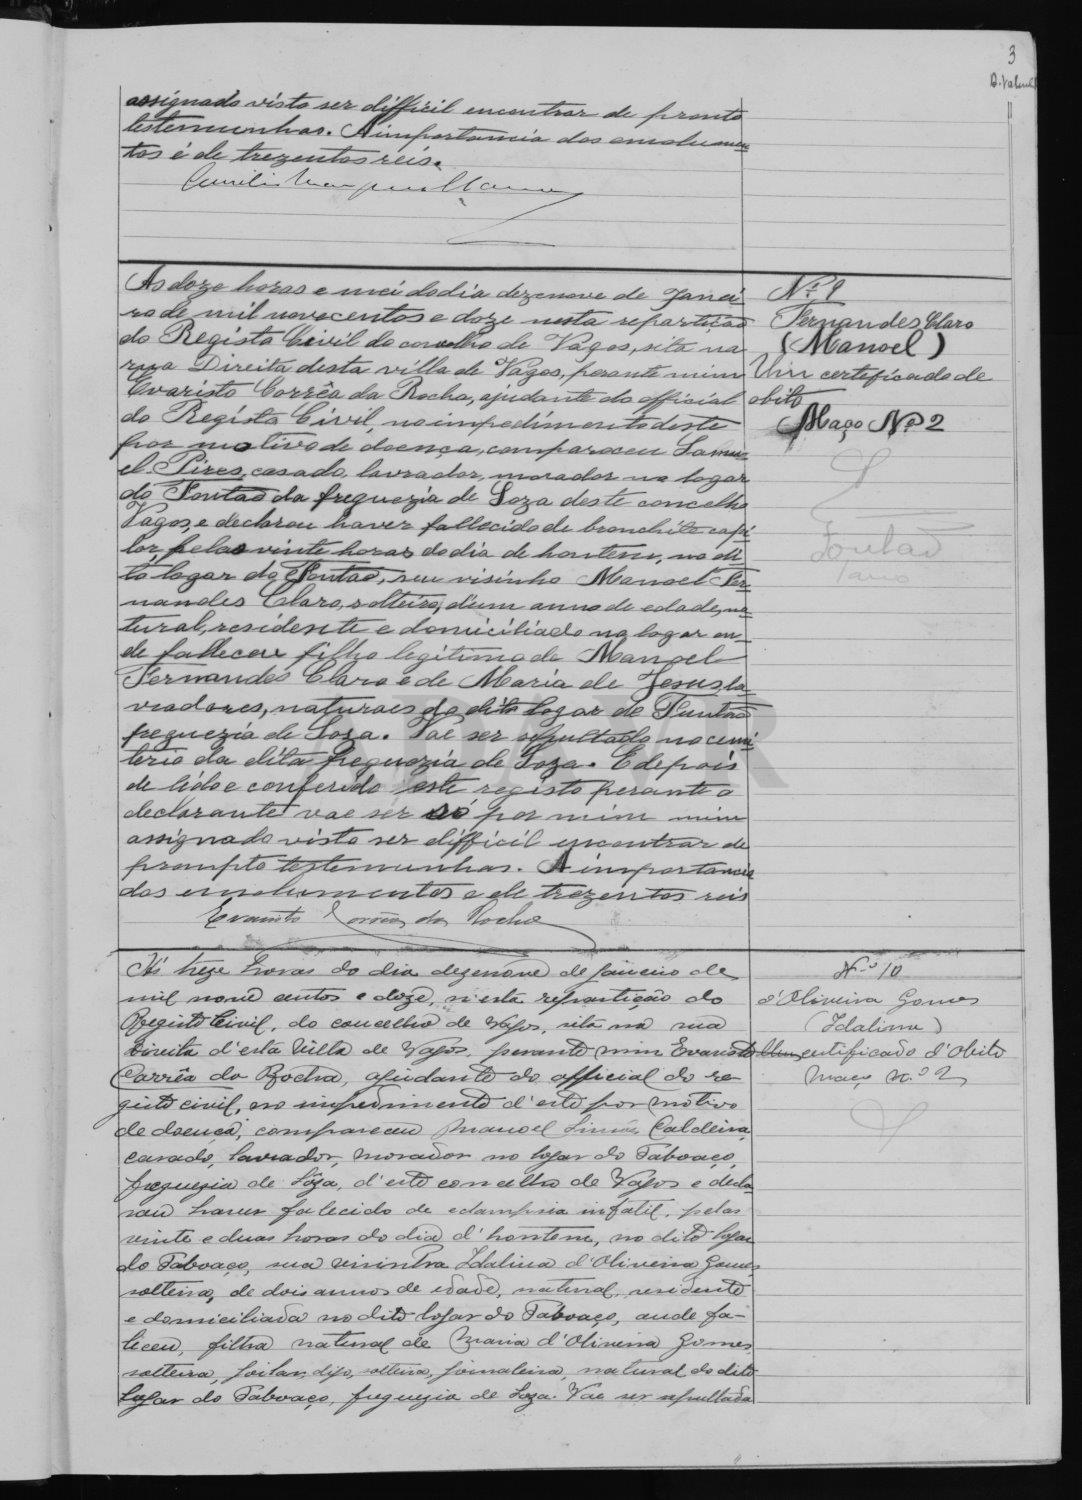 3
assignado visto ser difficil encontrar de pronto
testemunhas. A importancia dos emolumen
tos é de trezentos reis.
As doze horas e meia do dia dezenove de Janei
ro de mil novecentos e doze nesta repartição
do Registo Civil do concelho de Vagos, sita na
rua Direita desta villa de Vagos, perante mim
Evaristo Corrêa da Rocha, ajudante do official
do Registo Civil, no impedimento deste
por motivo de doença, compareceu Samu
el Pires, casado, lavrador, morador no logar
do Fontão da freguezia de Soza deste concelho
Vagos, e declarou haver fallecido de bronchite capi
lar, pelas vinte horas do dia de hontem, no di
to logar do Fontão, seu visinho Manoel Fer
nandes Claro, solteiro, d'um anno de edade, na
tural, residente e domiciliado no logar on
de falleceu filho legitimo de Manoel
Fernandes Claro e de Maria de Jesus, la
vradores, naturaes do dito logar de Fontão
freguezia de Soza. Vae ser sepultado no cemi
terio da dita freguezia de Soza. E depois
de lido e conferido este registo perante o
declarante vae ser só por mim mim
assignado visto ser difficil encontrar de
prompto testemunhas. A importancia
dos emolumentos e de trezentos reis
Evaristo Corrêa da Rocha
Nº 9
Fernandes Claro
(Manoel)
Um certificado de
obito
Maço Nº 2
Fontão
A's treze horas do dia dezenove de janeiro de
mil nove centos e doze, n'esta repartição do
Registo Civil, do concelho de Vagos, sita na rua
Direita d'esta Villa de Vagos, perante mim Evaristo
Corrêa da Rocha, ajudante do official do re
gisto civil, no impedimento d'este por motivo
de doença, compareceu Manoel Simões Caldeira,
casado, lavrador, morador no logar do Taboaço,
freguezia de Soza, d'este concelho de Vagos e decla
rou haver falecido de eclampsia infatil, pelas
vinte e duas horas do dia d'hontem, no dito logar
do Taboaço, sua visinha Idalina d'Oliveira Gomes,
solteira, de dois annos de edade, natural, residente
e domiciliada no dito logar do Taboaço, aonde fa-
leceu, filha natural de Maria d'Oliveira Gomes,
solteira, digo, solteira, jornaleira, natural do dito
logar do Taboaço, freguezia de Soza. Vae ser sepultada
N.º 10
d'Oliveira Gomes
(Idalina)
Um certificado d'obito
Maço n.º 2